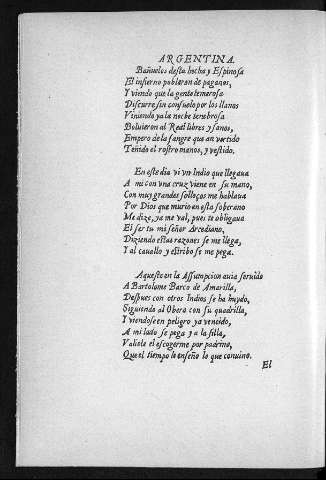 ARGENTINA.
Bañuelos desta hecha y Espinosa
El infierno poblaron de paganos,
Y viendo que la gente temerosa
Discurre sin consuelo por los llanos
Viniendo ya la noche tenebrosa
Boluieron al Real libres y sanos,
Empero de la sangre que an vertido
Teñido el rostro manos, y vestido.
En este dia vi vn Indio que llegaua
A mi con vna cruz viene en su mano,
Con muy grandes solloços me hablaua
Por Dios que murio en esta soberano
Me dize, ya me val, pues te obligaua
El ser tu mi señor Arcediano,
Diziendo estas razones se me llega,
Y al cauallo y estribo se me pega.
Aqueste en la Assumpcion auia seruido
A Bartolome Barco de Amarilla,
Despues con otros Indios se ha huydo,
Siguiendo al Obera con su quadrilla,
Y viendose en peligro ya vencido,
A mi lado se pega y a la silla,
Valiole el escogerme por padrino,
Que el tiempo le enseño lo que conuino.
El